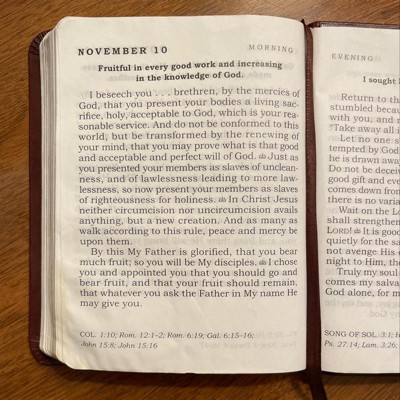 NOVEMBER 10 MORNING
Fruitful in every good work and increasing
in the knowledge of God.
I beseech you . . . brethren, by the mercies of
God, that you present your bodies a living sac-
rifice, holy, acceptable to God, which is your rea-
sonable service. And do not be conformed to this
world, but be transformed by the renewing of
your mind, that you may prove what is that good
and acceptable and perfect will of God. Just as
you presented your members as slaves of unclean-
ness, and of lawlessness leading to more law-
lessness, so now present your members as slaves
of righteousness for holiness. In Christ Jesus
neither circumcision nor uncircumcision avails
anything, but a new creation. And as many as
walk according to this rule, peace and mercy be
upon them.
By this My Father is glorified, that you bear
much fruit; so you will be My disciples. I chose
you and appointed you that you should go and
bear fruit, and that your fruit should remain,
that whatever you ask the Father in My name He
may give you.
COL. 1:10; Rom. 12:1–2; Rom. 6:19; Gal. 6:15–16;
John 15:8; John 15:16
EVENING
I sought
Return to th
stumbled becau
with you, and r
"Take away all i
Let no one s
tempted by God
he is drawn away
Do not be deceiv
good gift and ever
comes down from
there is no variati
Wait on the Lo
shall strengthen
LORD! It is good
quietly for the sa
not avenge His
night to Him, the
Truly my soul
comes my salva
God alone, for m
SONG OF SOL. 3:1; H
Ps. 27:14; Lam. 3:26;